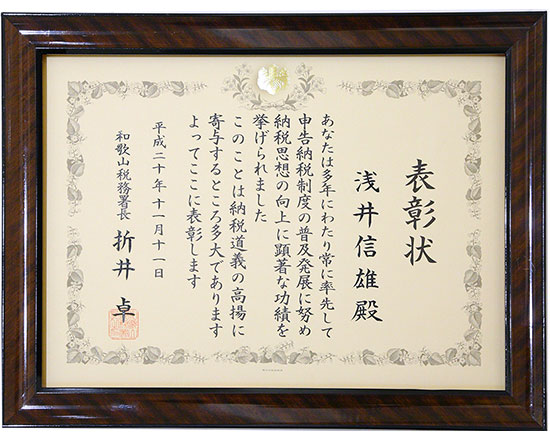 表彰状
浅井信雄殿
あなたは多年にわたり常に率先して
申告納税制度の普及発展に努め
納税思想の向上に顕著な功績を
挙げられました
このことは納税道義の高揚に
寄与するところ多大であります
よってここに表彰します
平成二十年十一月十一日
和歌山税務署長 折井 卓